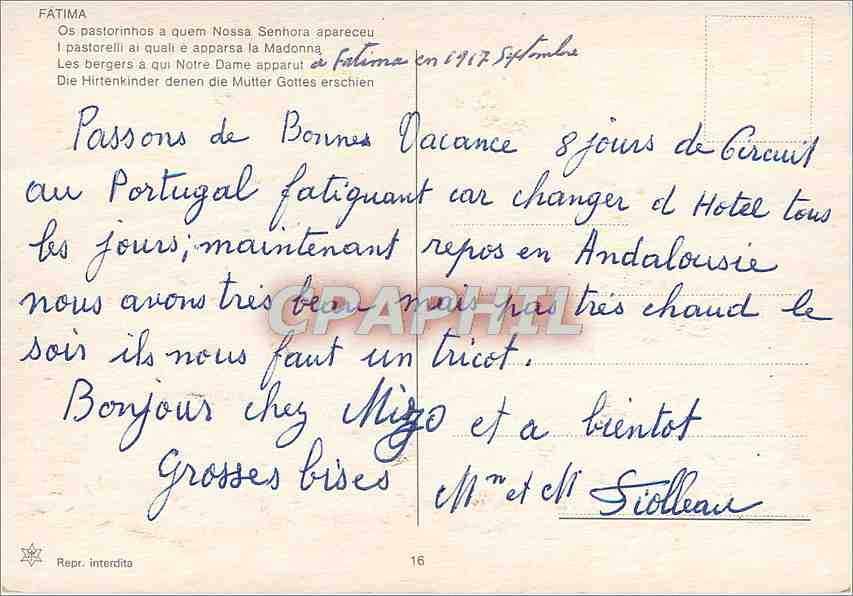 FÁTIMA
Os pastorinhos a quem Nossa Senhora apareceu
I pastorelli ai quali è apparsa la Madonna
Les bergers à qui Notre Dame apparut à Fatima en 1917 Septembre
Die Hirtenkinder denen die Mutter Gottes erschien
Passons de Bonnes Vacance 8 jours de Circuit
au Portugal fatiguant car changer d Hotel tous
les jours; maintenant repos en Andalousie
nous avons très beau mais pas très chaud le
soir ils nous faut un tricot.
Bonjour chez et a bientot
Grosses bises Mm et M Siolleau
CPAPHIL
Repr. interdita 16